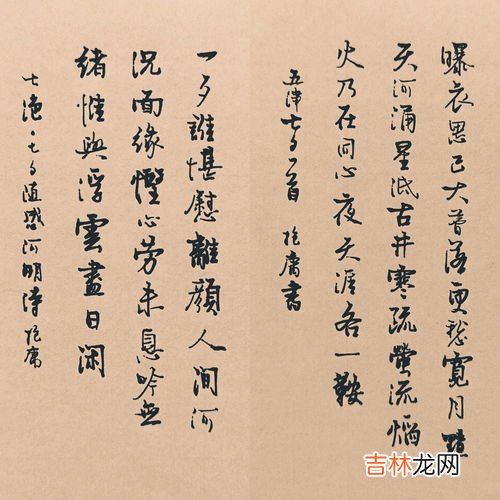 曝衣思已大落更愁寬月
天河涌星低古井寒疏螢流惱
火乃在同心夜天涯各一鞍
五律七夕一首 書
一夕誰堪慰離顏人間河
況面緣慳心勞未息吟無
緒惟與浮雲盡日閑
七絕·七夕河明詩
吉林龙网